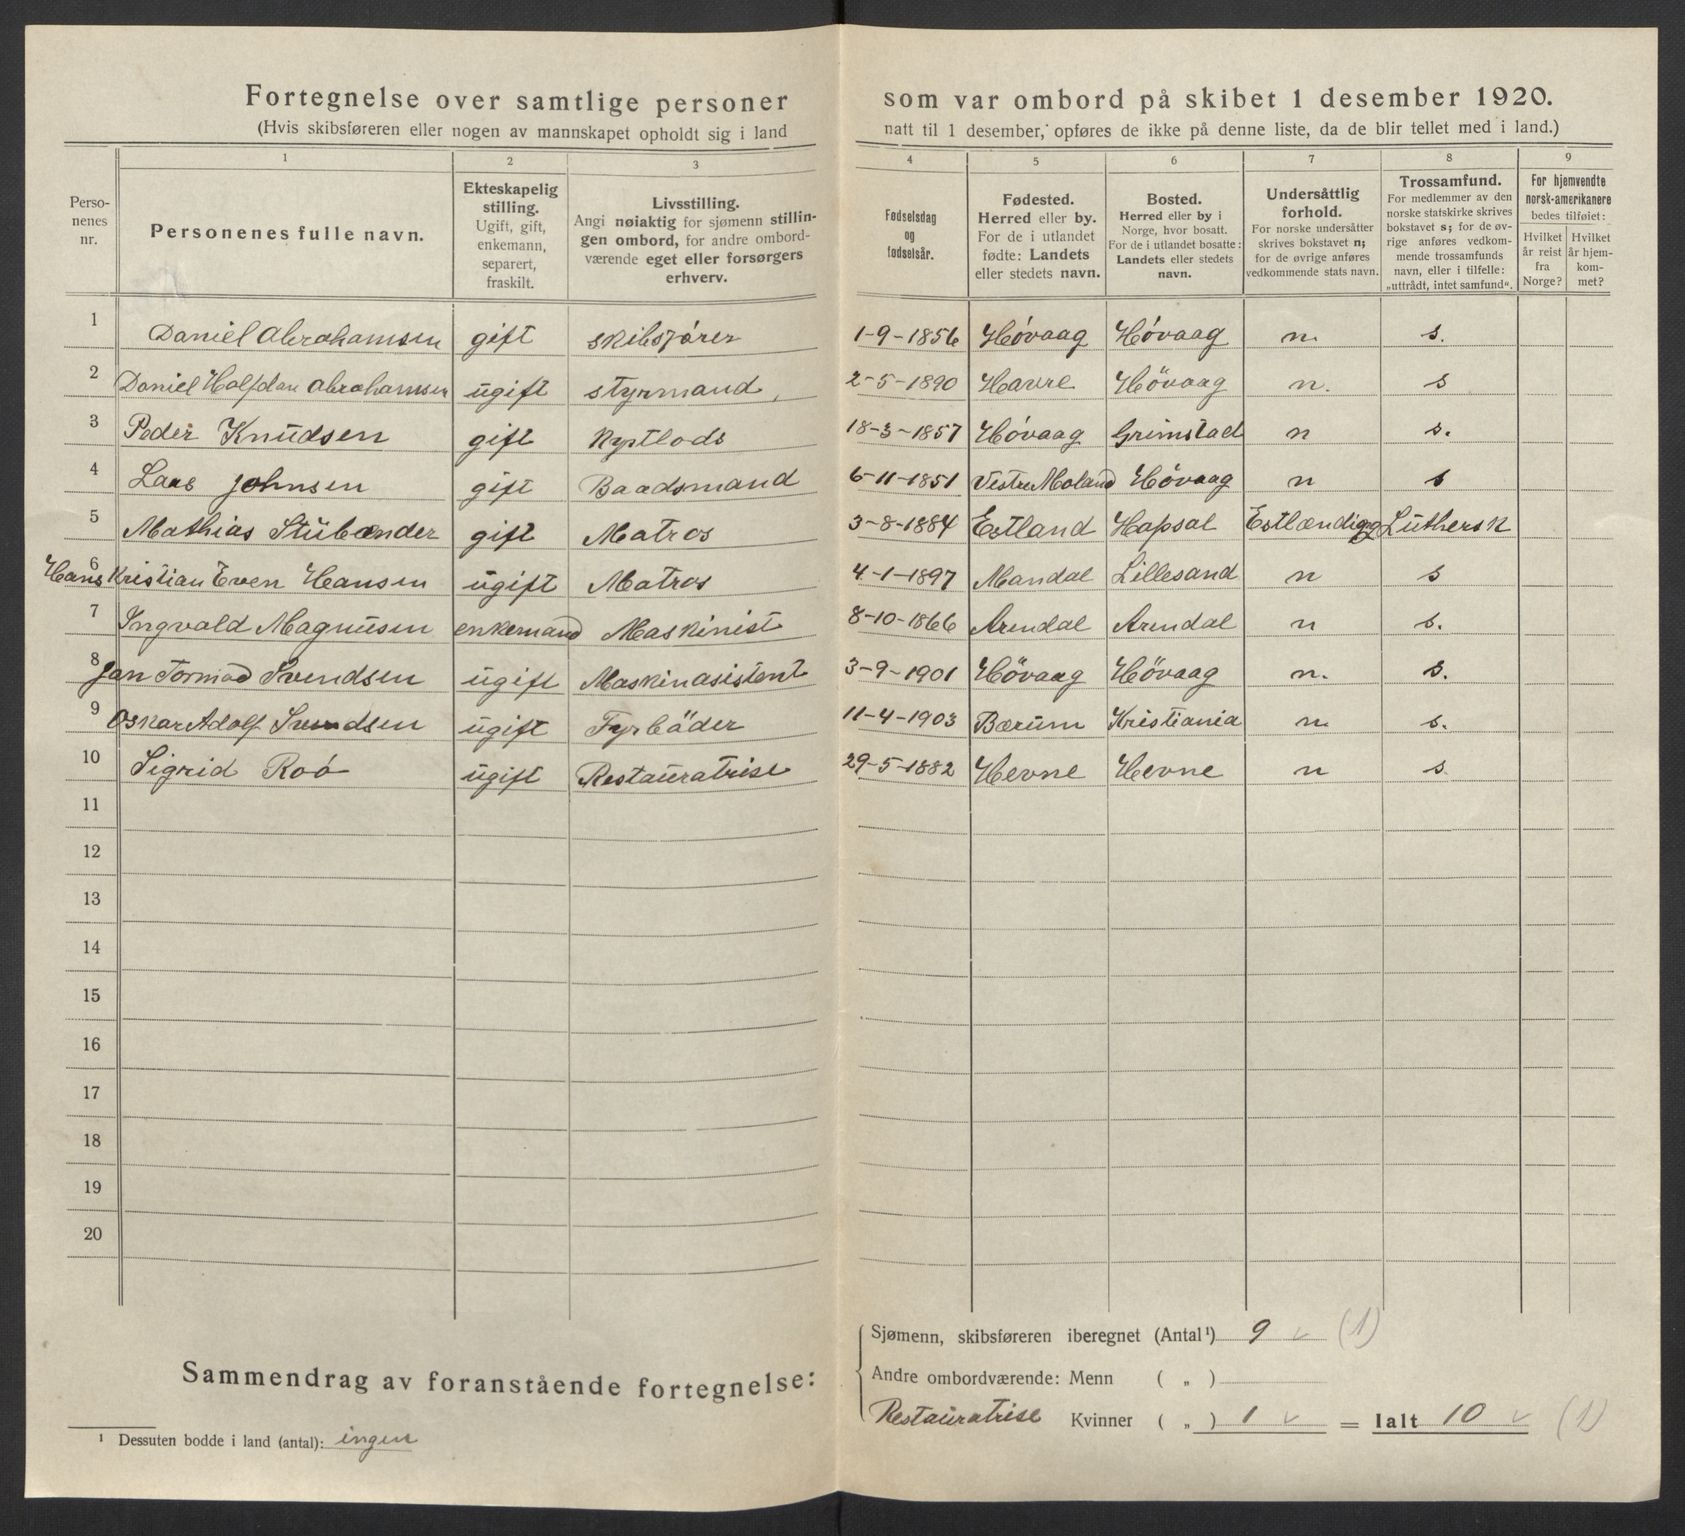 Fortegnelse over samtlige personer som var ombord på skibet 1 desember 1920.
(Hvis skibsføreren eller nogen av mannskapet opholdt sig i land natt til 1 desember, opføres de ikke på denne liste, da de blir tellet med i land.)
1 2 3 4 5 6 7 8 9
Perso-nenes nr.
Personenes fulle navn.
Ekteskapelig stilling. Ugift, gift, enkemann, separert, fraskilt.
Livsstilling. Angi nøiaktig for sjømenn stillin-gen ombord, for andre ombord-værende eget eller forsørgers erhverv.
Fødselsdag og fødselsår.
Fødested. Herred eller by. For de i utlandet fødte: Landets eller stedets navn.
Bosted. Herred eller by i Norge, hvor bosatt. For de i utlandet bosatte: Landets eller stedets navn.
Undersåttlig forhold. For norske undersåtter skrives bokstavet n; for de øvrige anføres vedkommende stats navn.
Trossamfund. For medlemmer av den norske statskirke skrives bokstavet s; for de øv-rige anføres vedkom-mende trossamfunds navn, eller i tilfelle: „uttrådt, intet samfund".
For hjemvendte norsk-amerikanere bedes tilføiet:
Hvilket år reist fra Norge?
Hvilket år hjem-kom-met?
1 Daniel Abrahamsen gift skibsfører 1-9-1856 Hóvaag Hóvaag n. s.
2 Daniel Halfdan Abrahamsen ugift styrmand, 2-5-1890 Havre Hövaag n. s
3 Peder Knudsen gift Kystlods 18-3-1857 Hóvaag Grimstad n s.
4 Lars Johnsen gift Baadsmand 6-11-1851 Vestre Moland Hövaag n s
5 Mathias Stübender gift Matros 3-8-1884 Estland Hapsal Estlændigg Luthersk
6 Hans Kristian Even Hansen ugift Matros 4-1-1897 Mandal Lillesand n s
7 Ingvald Magnusen enkemand Maskinist 8-10-1866 Arendal Arendal n s.
8 Jan Tormod Svendsen ugift Maskinasistent 3-9-1901 Hövaag Hövaag n. s.
9 Oskar Adolf Svendsen ugift Fyrböder 11-4-1903 Bærum Kristiania n s.
10 Sigrid Roó ugift Restauratrise 29-5-1882 Hevne Hevne n s
11
12
13
14
15
16
17
18
19
20
Sammendrag av foranstående fortegnelse:
Sjømenn, skibsføreren iberegnet (Antal¹) 9 v (1)
Andre ombordværende: Menn ( „ )
Restauratrise Kvinner ( „ ) 1 v = Ialt 10 v (1)
¹ Dessuten bodde i land (antal): ingen